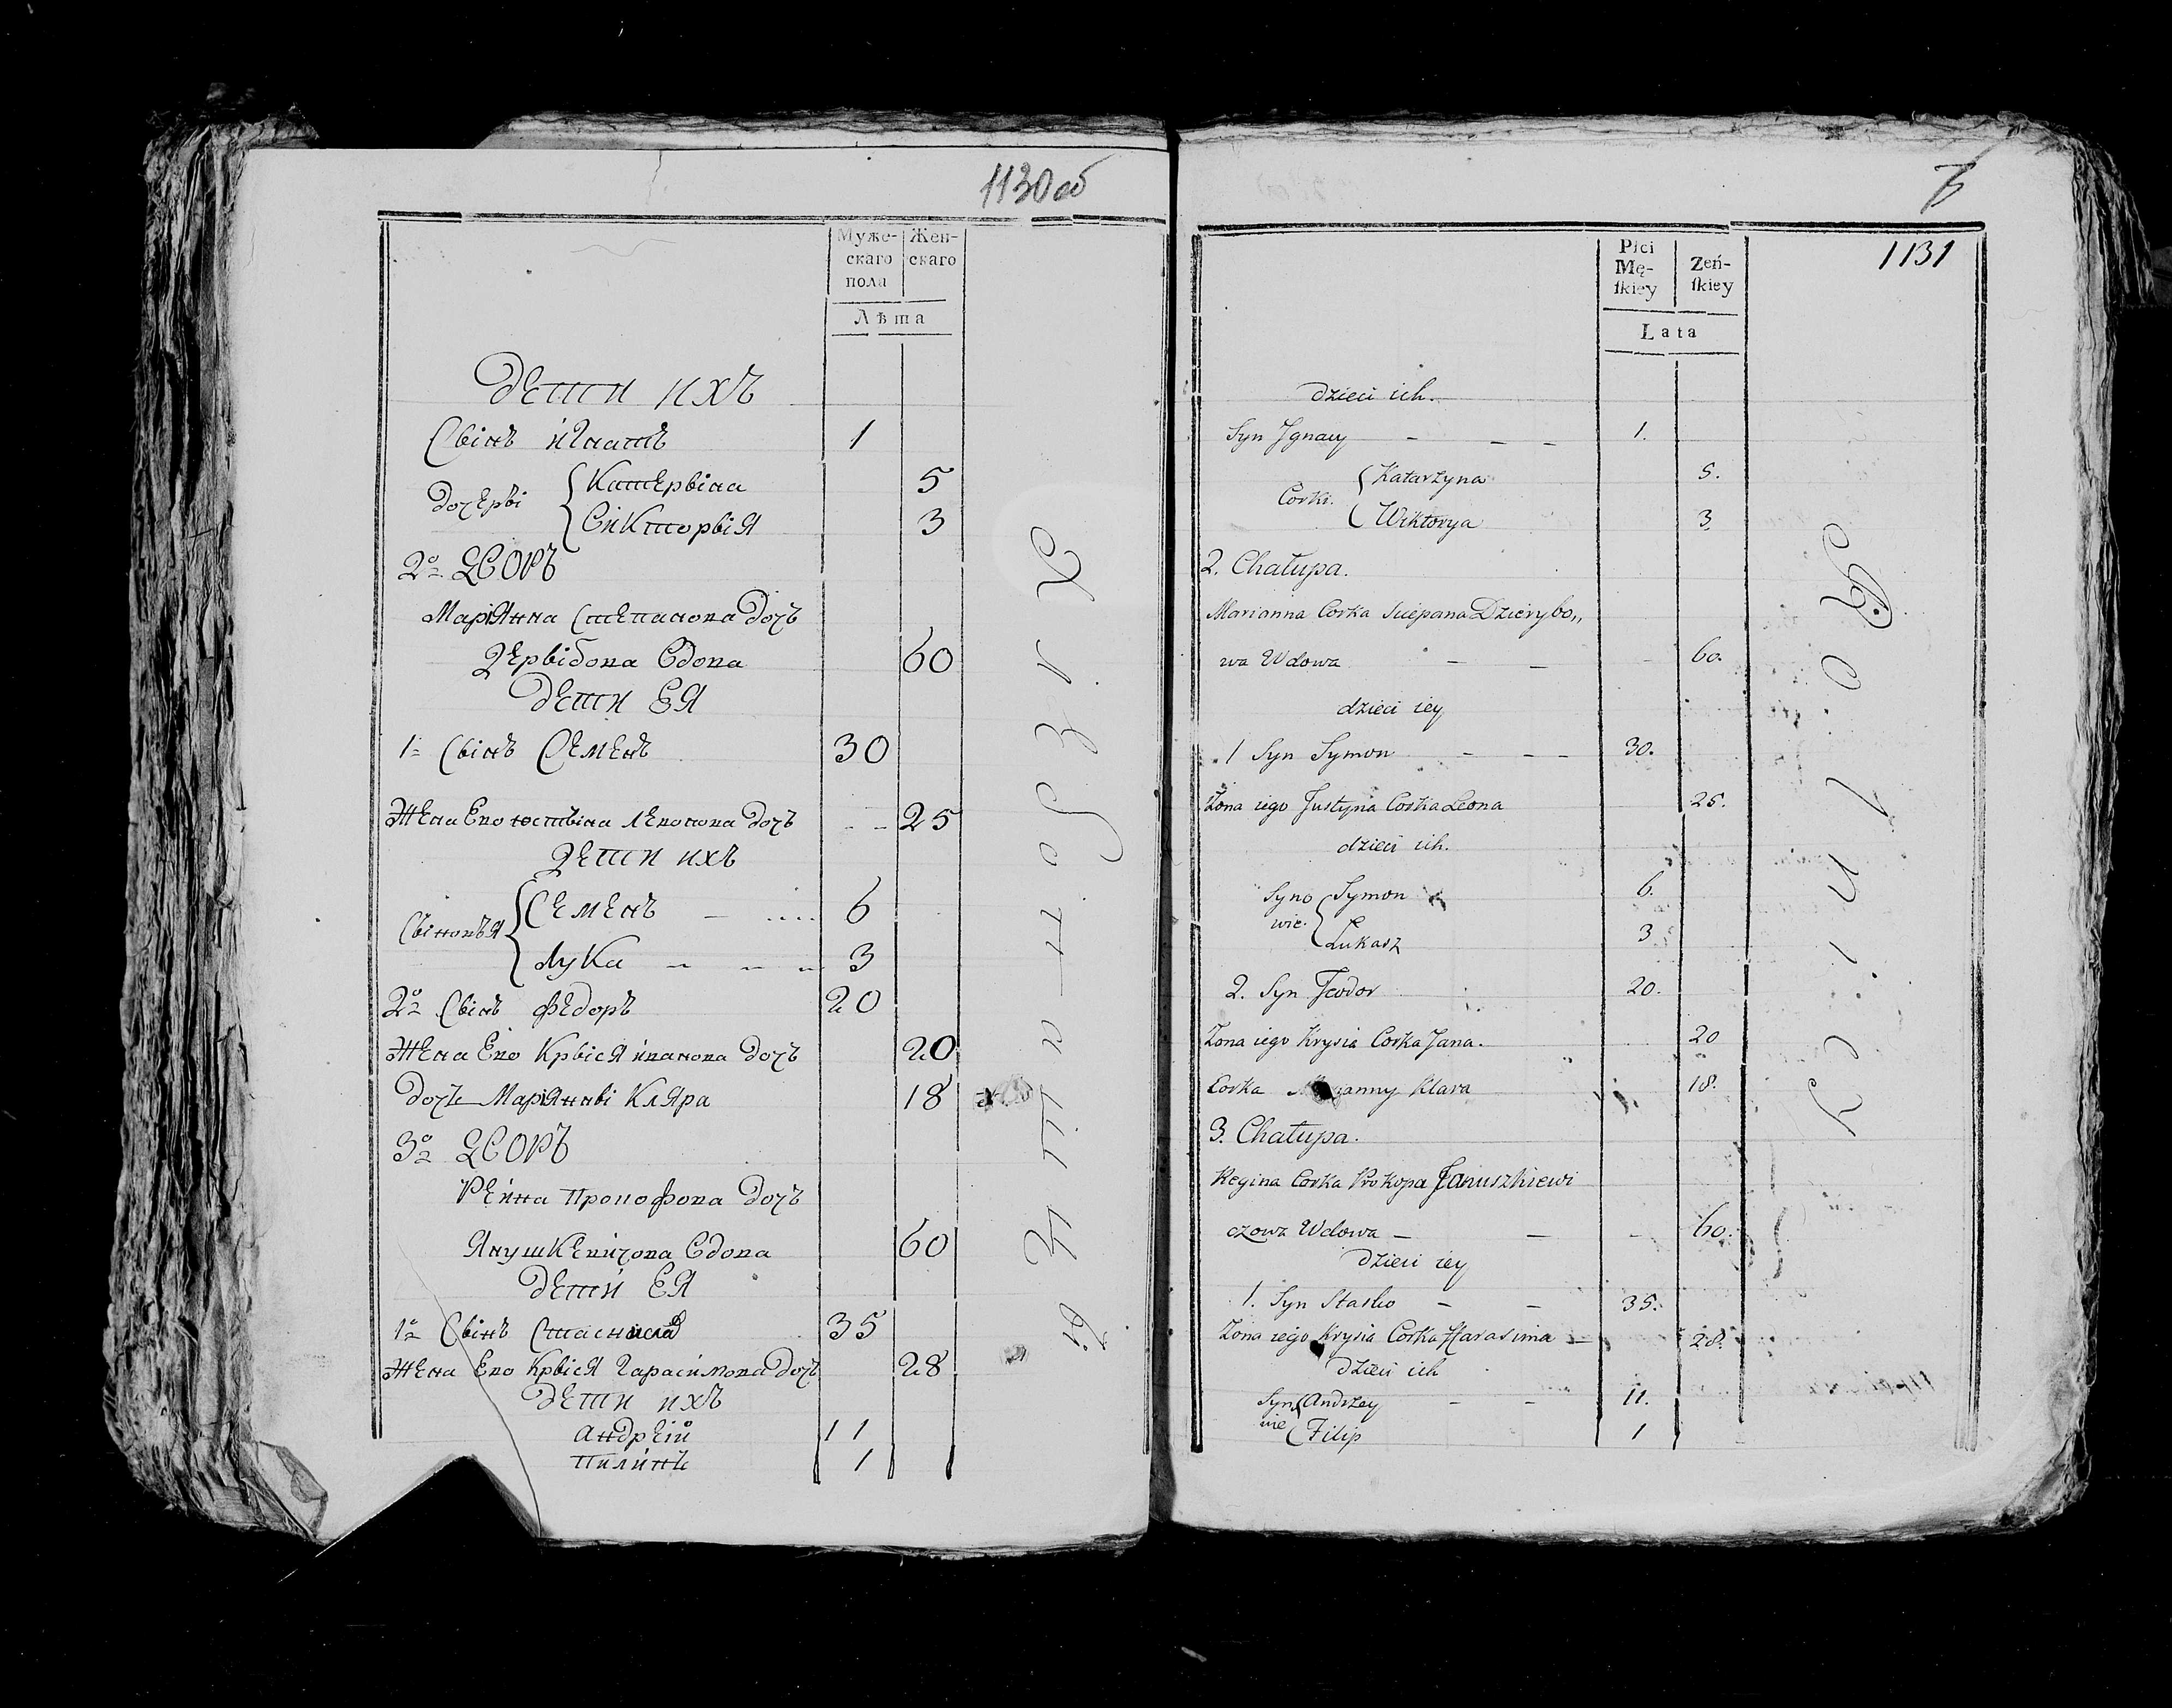 1130 об
Муже-
скаго
пола
Жен-
скаго
Лѣта
Дети ихъ
Сынъ игнатъ 1
дочеры { Катерына 5
Викторыя 3
2о ДВОРЪ
Марянна степанова дочъ
Дерыбова вдова 60
дети ея
1 Сынъ Семенъ 30
Жена Его юстына левонова дочъ 25
дети ихъ
Сыновья { Семенъ 6
лука 3
2о Сынъ федоръ 20
Жена Его Крыся иванова дочъ 20
дочь Марянны Кляра 18
3о ДВОРЪ
Реина прокофова дочъ
янушкевичова вдова 60
дети ея
1о Сынъ стасислав 35
Жена Его Крыся гарасимова дочъ 28
дети ихъ
андрей 11
пилипъ 1
1131
Płci
Mę-
skiey
Zeń-
skiey
Lata
dzieci ich.
Syn Jgnacy 1.
Corki. { Katarzyna 5.
Wiktorya 3
2. Chałupa.
Marianna Corka Sczepana Dzierybo„
wa Wdowa 60.
dzieci iey
1 Syn Symon 30.
Zona iego Justyna Corka Leona 25.
dzieci ich.
Syno
wie. { Symon 6.
Łukasz 3
2. Syn Teodor 20.
Zona iego Krysia Corka Jana. 20
Corka Maryanny Klara 18.
3. Chałupa.
Regina Corka Prokopa Januszkiewi
czowa Wdowa 60.
dzieci iey
1. Syn Stasko 35.
Zona iego Krysia Corka Harasima 28.
Dzieci ich
Syno
wie { Andrzey 11.
Filip 1
Rolnicy